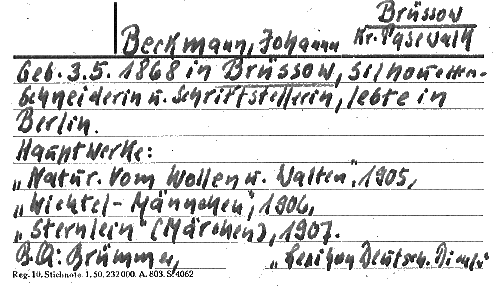 Brüssow
Beckmann, Johanna Kr. Pasewalk
Geb. 3.5.1868 in Brüssow, Silhouetten-
schneiderin u. Schriftstellerin, lebte in
Berlin.
Hauptwerke:
„Natur. Vom Wollen u. Walten", 1905,
„Wichtel-Männchen", 1906,
„Sternlein" (Märchen), 1907.
B.A: Brümmer, „Lexikon Deutsch. Dicht."
Reg. 10. Stichnote. 1.50. 232000. A. 803. S. 4062